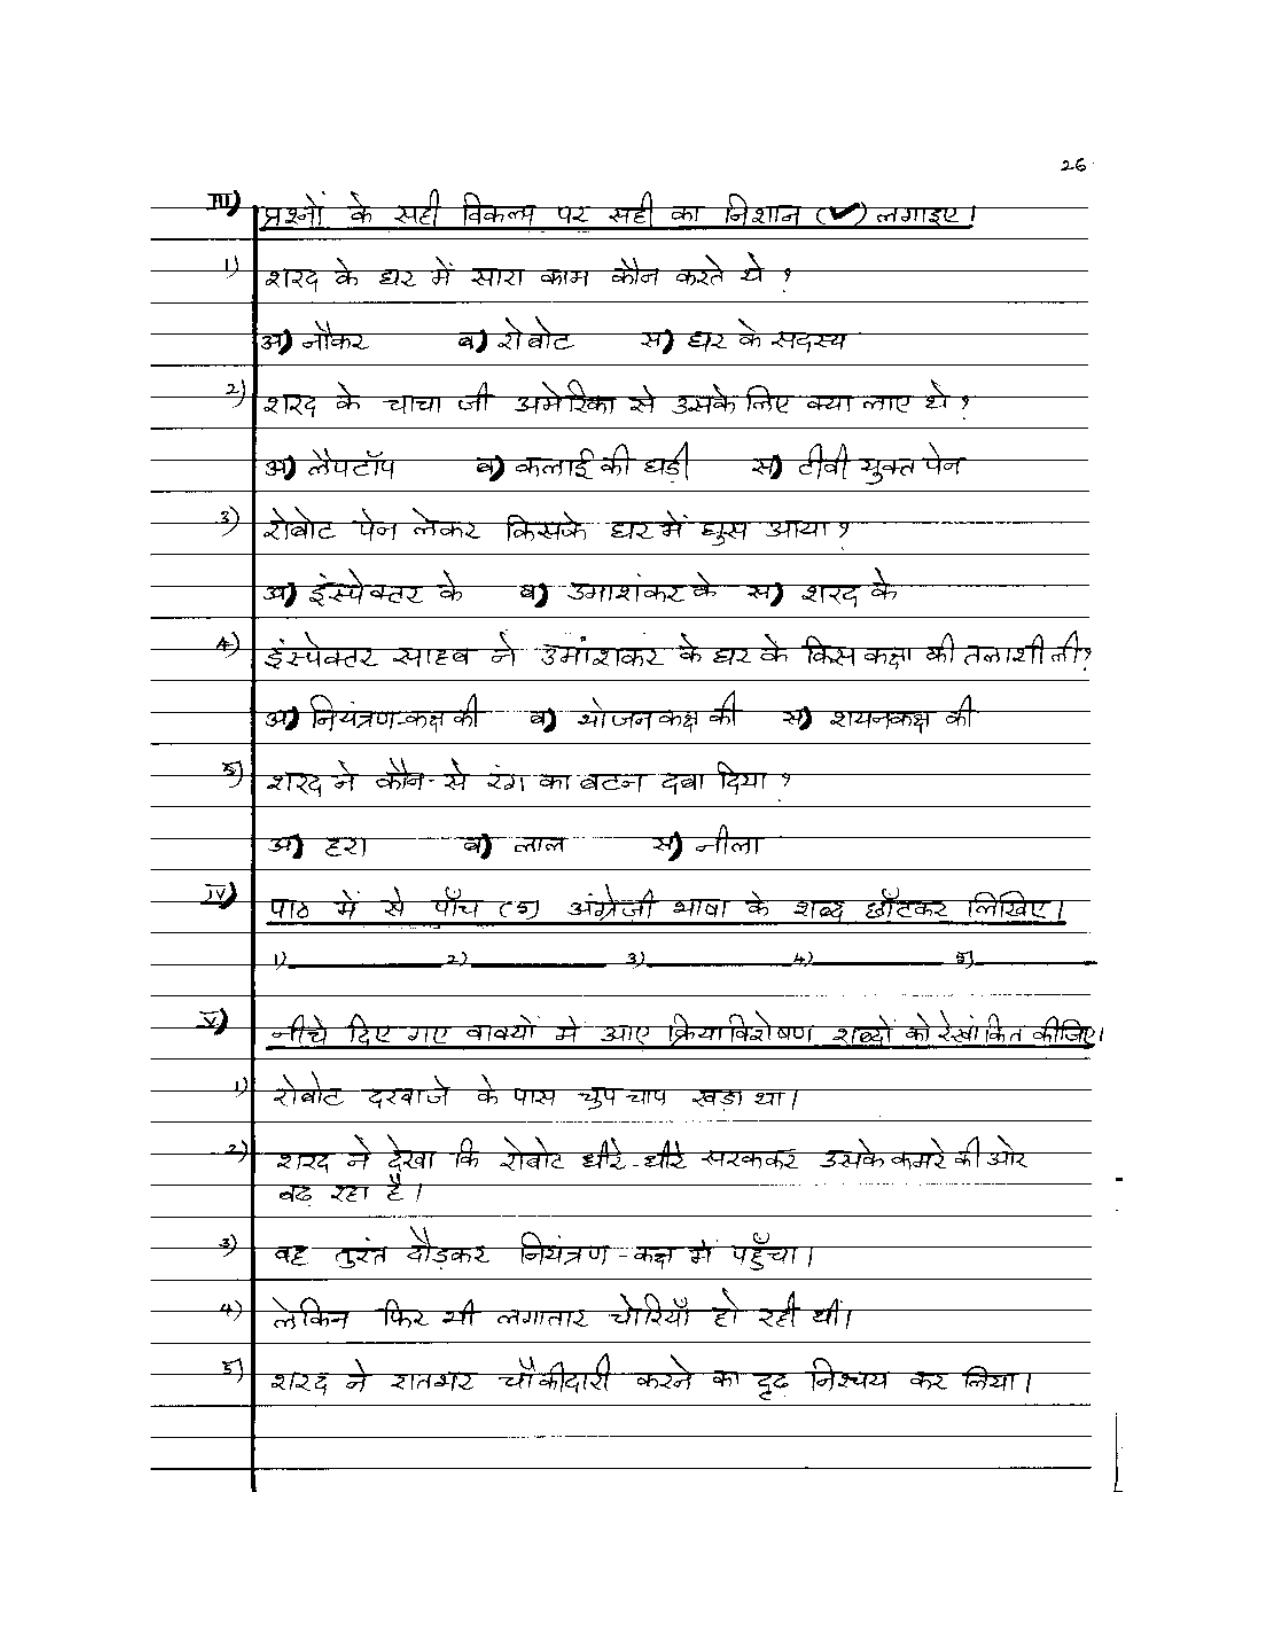 26
III) प्रश्नों के सही विकल्प पर सही का निशान (✓) लगाइए।
1) शरद के घर में सारा काम कौन करते थे ?
अ) नौकर ब) रोबोट स) घर के सदस्य
2) शरद के चाचा जी अमेरिका से उसके लिए क्या लाए थे ?
अ) लैपटॉप ब) कलाई की घड़ी स) टीवी युक्त पेन
3) रोबोट पेन लेकर किसके घर में घुस आया ?
अ) इंस्पेक्टर के ब) उमाशंकर के स) शरद के
4) इंस्पेक्टर साहब ने उमांशकर के घर के किस कक्षा की तलाशी ली ?
अ) नियंत्रण-कक्ष की ब) भोजन कक्ष की स) शयनकक्ष की
5) शरद ने कौन-से रंग का बटन दबा दिया ?
अ) हरा ब) लाल स) नीला
IV) पाठ में से पाँच (5) अंग्रेजी भाषा के शब्द छाँटकर लिखिए।
1) 2) 3) 4) 5)
V) नीचे दिए गए वाक्यों में आए क्रियाविशेषण शब्दों को रेखांकित कीजिए।
1) रोबोट दरवाजे के पास चुप चाप खड़ा था।
2) शरद ने देखा कि रोबोट धीरे-धीरे सरककर उसके कमरे की ओर
बढ़ रहा है।
3) वह तुरंत दौड़कर नियंत्रण-कक्ष में पहुँचा।
4) लेकिन फिर भी लगातार चोरियाँ हो रही थीं।
5) शरद ने रातभर चौकीदारी करने का दृढ़ निश्चय कर लिया।